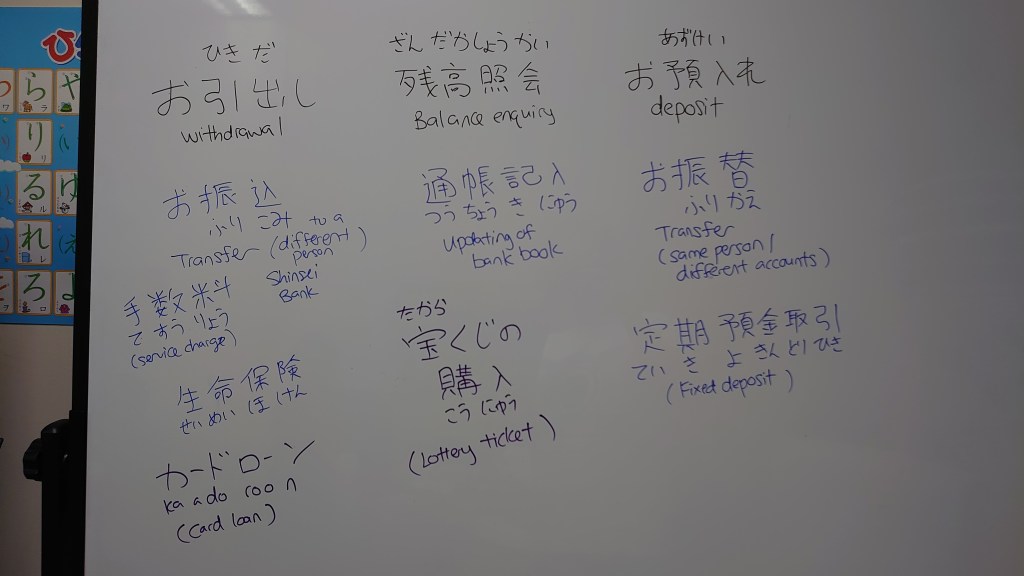 ひきだ
お引出し
withdrawal
ざんだかしょうかい
残高照会
Balance enquiry
あずけい
お預入れ
deposit
お振込
ふりこみ
Transfer (different person) to a
Shinsei
Bank
通帳記入
つうちょうきにゅう
Updating of
bank book
お振替
ふりかえ
Transfer
(same person/
different accounts)
手数料
てすうりょう
(service charge)
だから
宝くじの
購入
こうにゅう
(Lottery ticket)
定期預金取引
ていきよきんとりひき
(Fixed deposit)
生命保険
せいめいほけん
カードローン
ka a do roo n
(card loan)
ら
や
り
る
ゆ
れ
ろ